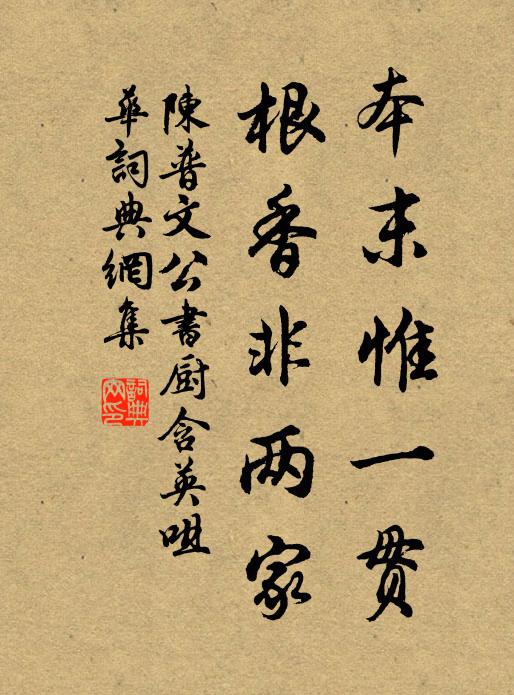 本末惟一贯
根香非两家
陳普文公書厨含英咀
華詞典網集
詞典網印